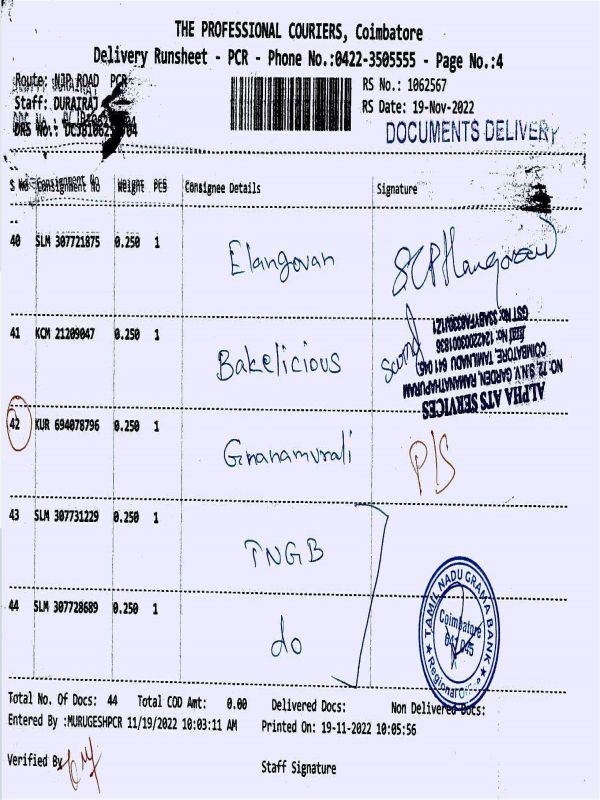 THE PROFESSIONAL COURIERS, Coimbatore
Delivery Runsheet - PCR - Phone No.:0422-3505555 - Page No.:4
Route: N3P ROAD PCR
RS No.: 1062567
Staff: DURAIRAJ
RS Date: 19-Nov-2022
DRS No.:
DOCUMENTS DELIVERY
S No Consignment No Weight PCS Consignee Details Signature
40 SLM 307721875 0.250 1 Elangovan
41 KCM 21209047 0.250 1 Bakelicious
ALPHA ATS SERVICES
NO. 72, S.N.V. GARDEN, RAMANATHAPURAM
COIMBATORE, TAMILNADU 641 045
42 KUR 694078796 0.250 1 Gnanamurali P/S
43 SLM 307731229 0.250 1 TNGB
44 SLM 307728689 0.250 1 do
TAMIL NADU GRAMA BANK
Coimbatore
641 045
Regional Office
Total No. Of Docs: 44 Total COD Amt: 0.00 Delivered Docs: Non Delivered Docs:
Entered By :MURUGESHPCR 11/19/2022 10:03:11 AM Printed On: 19-11-2022 10:05:56
Verified By
Staff Signature